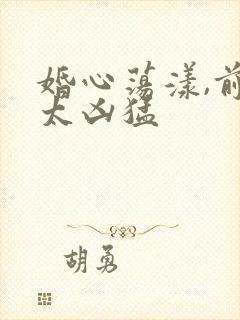 婚心荡漾,前
太凶猛
胡勇